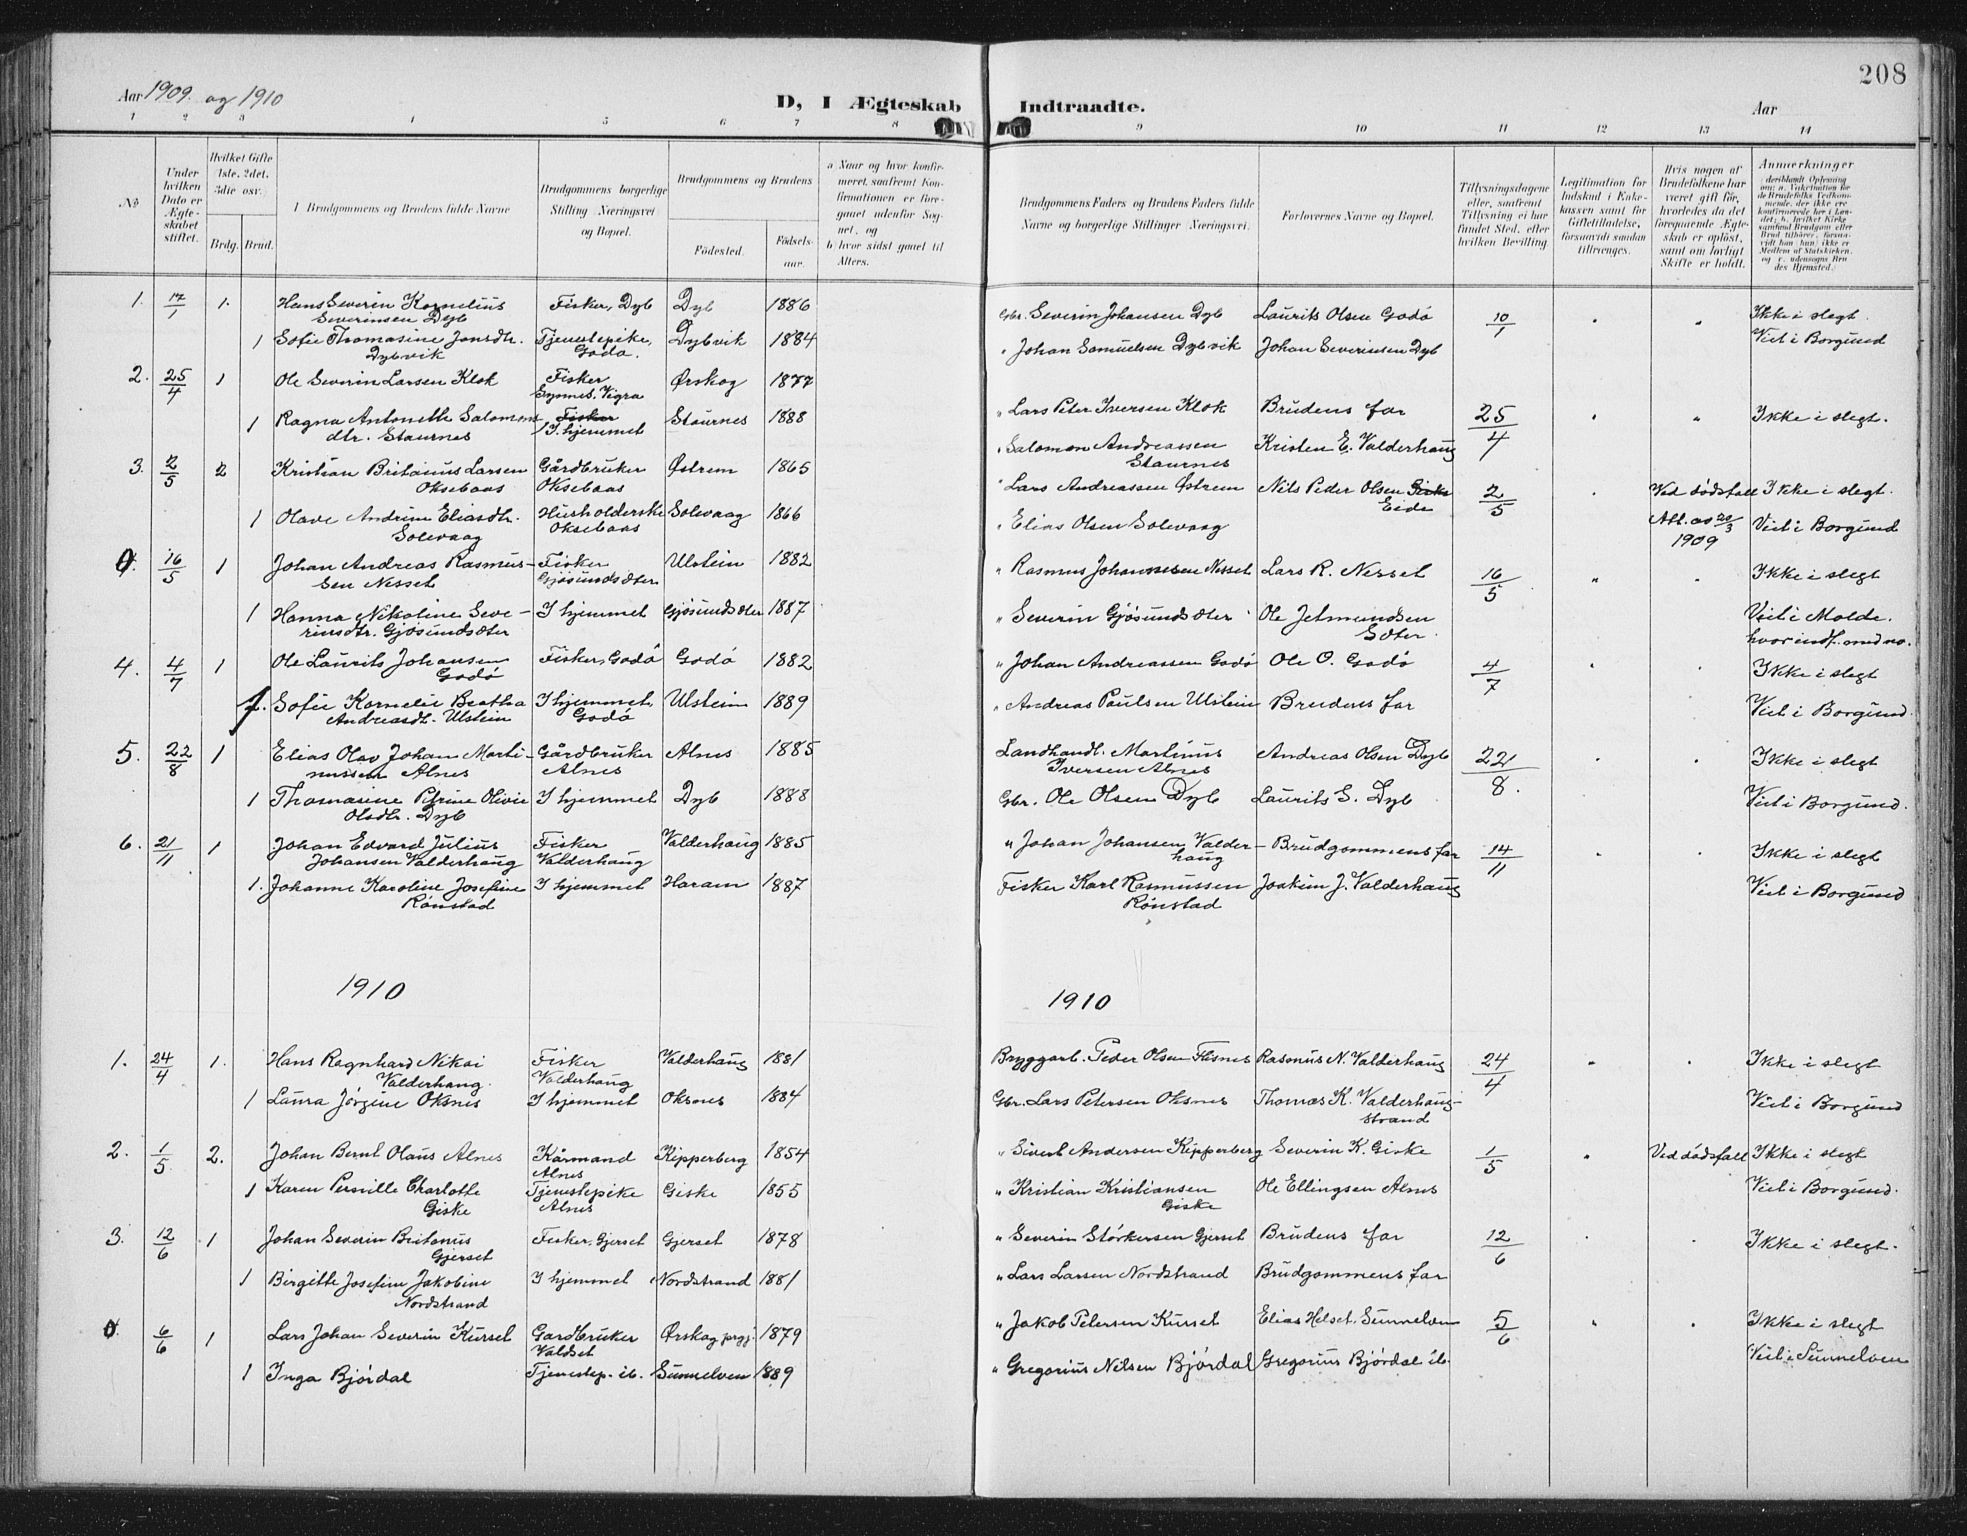 208
Aar 1909. og 1910
D, I Ægteskab Indtraadte.
Aar
1 2 3 4 5 6 7 8 9 10 11 12 13 14
No
Under hvilken Dato er Ægteskabet stiftet.
Hvilket Gifte 1ste, 2det, 3die osv.
Brdg. Brud.
Brudgommens og Brudens fulde Navne
Brudgommens borgerlige Stilling Næringsvei og Bopæl.
Brudgommens og Brudens
Fødested.
Fødselsaar.
a. Naar og hvor konfirmeret, saafremt Konfirmationen er foregaaet udenfor Sognet, og
b. hvor sidst gaaet til Alters.
Brudgommens Faders og Brudens Faders fulde Navne og borgerlige Stillinger Næringsvei.
Forlovernes Navne og Bopæl.
Tillysningsdagene eller, saafremt Tillysning ei har fundet Sted, efter hvilken Bevilling.
Legitimation for Indskud i Enkekassen samt for Giftetilladelse, forsaavidt saadan tiltrænges.
Hvis nogen af Brudefolkene har været gift før, hvorledes da det foregaaende Ægteskab er opløst, samt om lovligt Skifte er holdt.
Anmerkninger
1. 17/1 1. Hans Severin Kornelius Severinsen Dyb Fisker, Dyb Dyb 1886 Gbr. Severin Johansen Dyb Laurits Olsen Godö 10/1 " " Ikke i slegt.
1 Sofie Thomasine Jonsdtr. Dybvik Tjenestepike, Godö. Dybvik 1884 " Johan Samuelsen Dybvik Johan Severinsen Dyb Viet i Borgund
2. 25/4 1 Ole Severin Larsen Klok Fisker Synnes, Vigra Ørskog 1877 " Lars Peter Iversen Klok Brudens far 25/4 " " Ikke i slegt.
1 Ragna Antonette Salomonsdtr. Staurnes Fisker I hjemmet Staurnes 1888 " Salomon Andreassen Staurnes Kristen E. Valderhaug
3. 2/5 2 Kristian Britanus Larsen Oksebaas Gårdbruker Oksebaas Østrem 1865 " Lars Andreassen Østrem Nils Peder Olsen Eide 2/5 " Ved dødsfall Ikke i slegt.
1 Olave Andrine Eliasdtr. Solevaag Husholderske Oksebaas Solevaag 1866 " Elias Olsen Solevaag Att. av 20/3 1909 Viet i Borgund
0. 16/5 1 Johan Andreas Rasmussen Nesset Fisker Gjøsundsæter Ulstein 1882 " Rasmus Johannesen Nesset Lars R. Nesset 16/5 " " Ikke i slegt
1 Hanna Nikoline Severinsdtr. Gjøsundsæter I hjemmet Gjøsundsæter 1887 " Severin Gjøsundsæter Ole Jetmundsen Sæter. Viet i Molde. hvor indf. med no.
4. 4/7 1 Ole Laurits Johansen Godö Fisker, Godö Godö 1882 " Johan Andreassen Godö Ole O. Godö 4/7 " " Ikke i slegt
1. Sofie Kornelie Beatha Andreasdt. Ulstein I hjemmet, Godö Ulstein 1889 " Andreas Paulsen Ulstein Brudens far Viet i Borgund.
5. 22/8 1 Elias Olav Johan Martinussen Alnes Gårdbruker Alnes Alnes 1885 Landhandl. Martinus Iversen Alnes Andreas Olsen Dyb 22/8. " " Ikke i slegt
1 Thomasine Petrine Olivie Olsdtr. Dyb I hjemmet Dyb 1888 Gbr. Ole Olsen Dyb Laurits S. Dyb Viet i Borgund.
6. 21/11 1 Johan Edvard Julius Johansen Valderhaug Fisker Valderhaug Valderhaug 1885 " Johan Johansen Valderhaug Brudgommens far 14/11 " " Ikke i slegt
1. Johanne Karoline Josefine Rönstad I hjemmet Haram 1887 Fisker Karl Rasmussen Rönstad Joakim J. Valderhaug Viet i Borgund
1910 1910
1. 24/4 1. Hans Ragnhard Nikai Valderhaug. Fisker Valderhaug Valderhaug 1881 Bryggarb. Peder Olsen Flesnes Rasmus N. Valderhaug 24/4 " " Ikke i slegt
1 Laura Jørgine Oksnes I hjemmet Oksnes 1884 Gbr. Lars Petersen Oksnes Thomas K. Valderhaug-strand Viet i Borgund
2. 1/5 2. Johan Bernt Olaus Alnes Kårmand Alnes Kipperberg 1854 " Sivert Andersen Kipperberg Severin K. Giske 1/5 " Ved dødsfall Ikke i slegt
1 Karen Pernille Charlotte Giske Tjenestepike Alnes Giske 1855 " Kristian Kristiansen Giske Ole Ellingsen Alnes Viet i Borgund.
3. 12/6 1 Johan Severin Britanus Gjerset Fisker, Gjerset Gjerset 1878 " Severin Störkersen Gjerset Brudens far 12/6 " " Ikke i slegt.
1 Birgitte Josefine Jakobine Nordstrand I hjemmet Nordstrand 1881 " Lars Larsen Nordstrand Brudgommens far
0. 6/6 1 Lars Johan Severin Kurset Gardbruker Valdset Ørskog prgj. 1879 " Jakob Petersen Kurset Elias Helset, Sunnelven 5/6 " " Ikke i slegt
1 Inga Bjørdal Tjenestep. ib. Sunnelven 1889 " Gregorius Nilsen Bjørdal Gregorius Bjørdal ib. Viet i Sunnelven